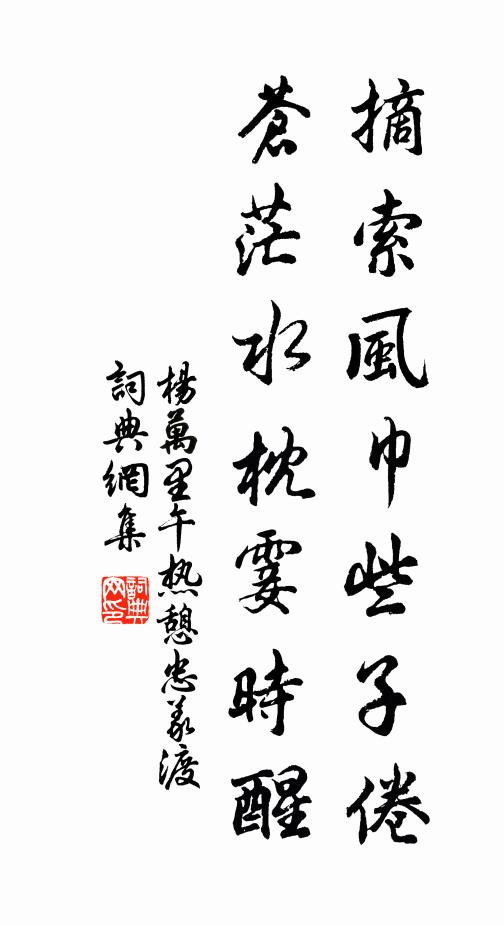 摘索風巾些子倦
蒼茫水枕霎時醒
楊萬里午热憩忠義渡
詞典網集
詞典
网印